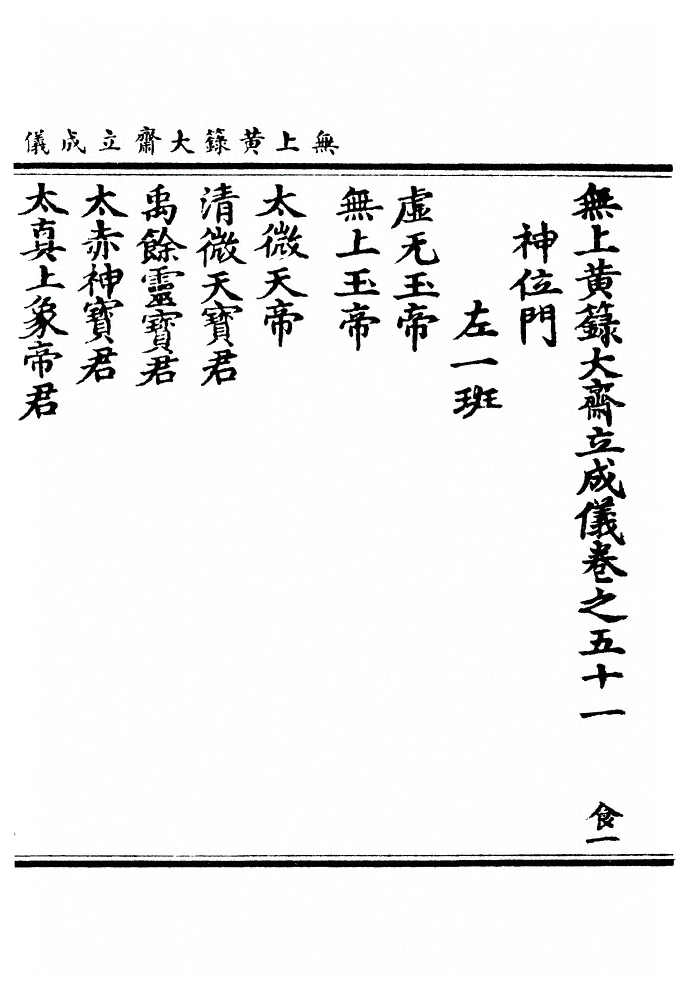 無上黄籙大齋立成儀
無上黄籙大齋立成儀卷之五十一 食一
神位門
左一班
虛无玉帝
無上玉帝
太微天帝
清微天寶君
禹餘靈寶君
太赤神寶君
太真上象帝君